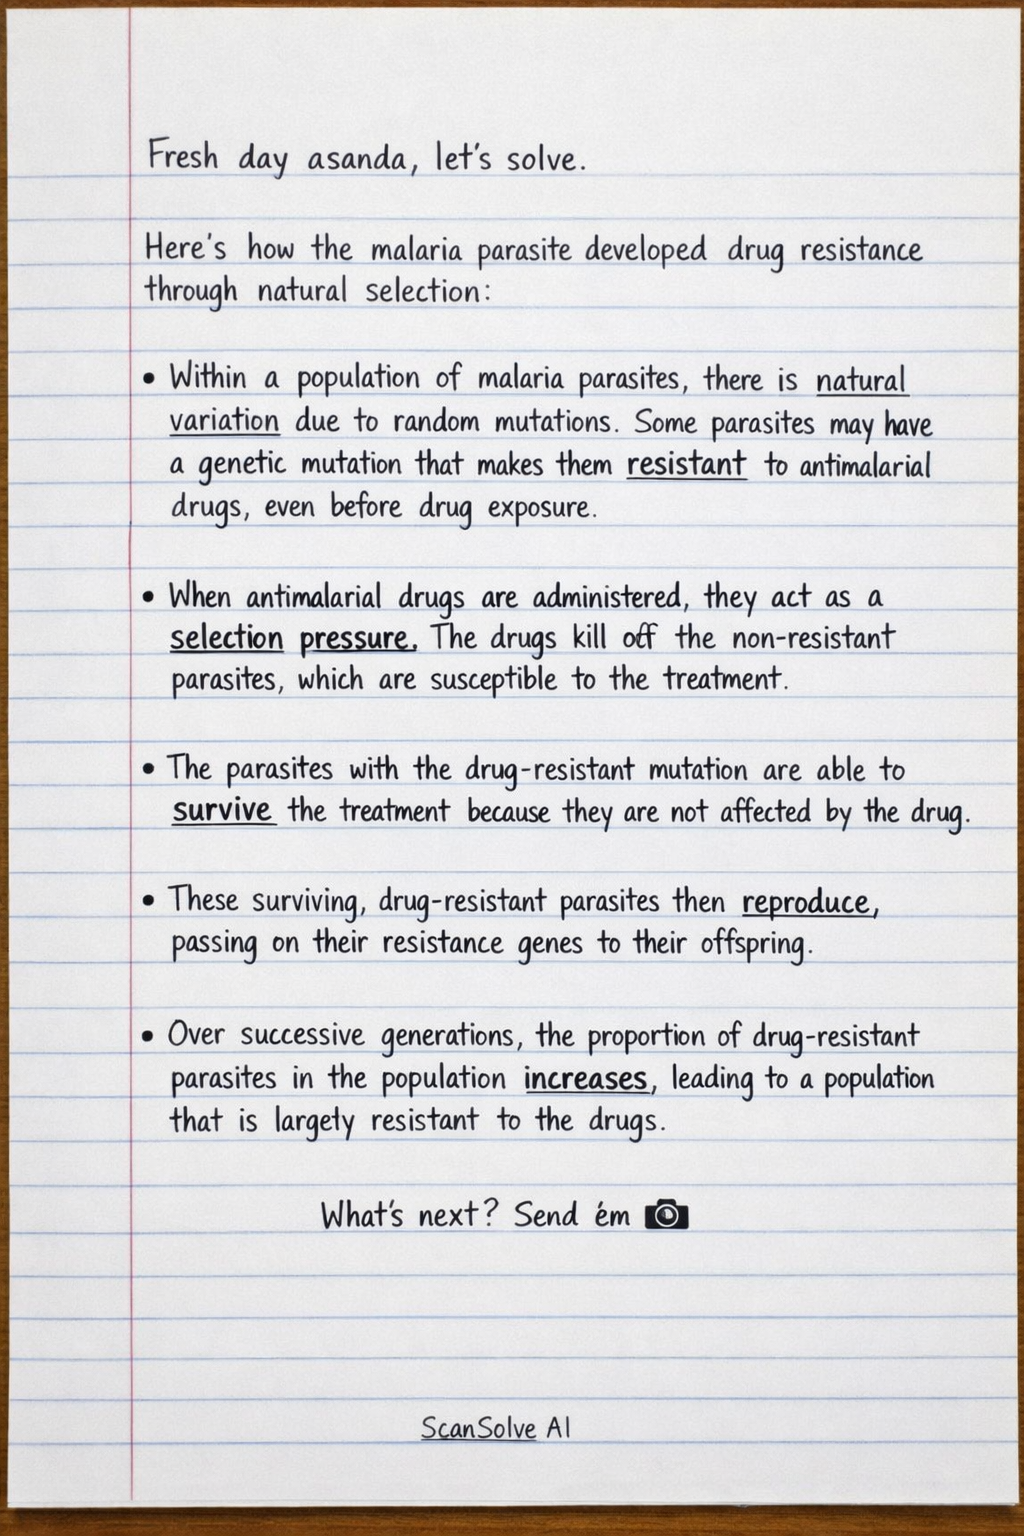 Fresh day asanda, let's solve.
Here's how the malaria parasite developed drug resistance
through natural selection:
• Within a population of malaria parasites, there is natural
variation due to random mutations. Some parasites may have
a genetic mutation that makes them resistant to antimalarial
drugs, even before drug exposure.
• When antimalarial drugs are administered, they act as a
selection pressure. The drugs kill off the non-resistant
parasites, which are susceptible to the treatment.
• The parasites with the drug-resistant mutation are able to
survive the treatment because they are not affected by the drug.
• These surviving, drug-resistant parasites then reproduce,
passing on their resistance genes to their offspring.
• Over successive generations, the proportion of drug-resistant
parasites in the population increases, leading to a population
that is largely resistant to the drugs.
What's next? Send ém 📷
ScanSolve AI